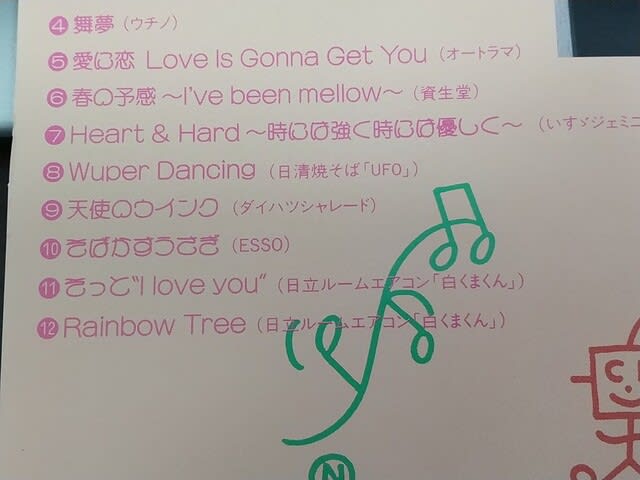 ④ 舞夢（ウチノ）
⑤ 愛に恋 Love Is Gonna Get You（オートラマ）
⑥ 春の予感 〜I've been mellow〜（資生堂）
⑦ Heart & Hard 〜時には強く時には優しく〜（いすゞジェミニ
⑧ Wuper Dancing（日清焼そば「UFO」）
⑨ 天使のウインク（ダイハツシャレード）
⑩ そばかすうさぎ（ESSO）
⑪ そっと“I love you”（日立ルームエアコン「白くまくん」）
⑫ Rainbow Tree（日立ルームエアコン「白くまくん」）
N